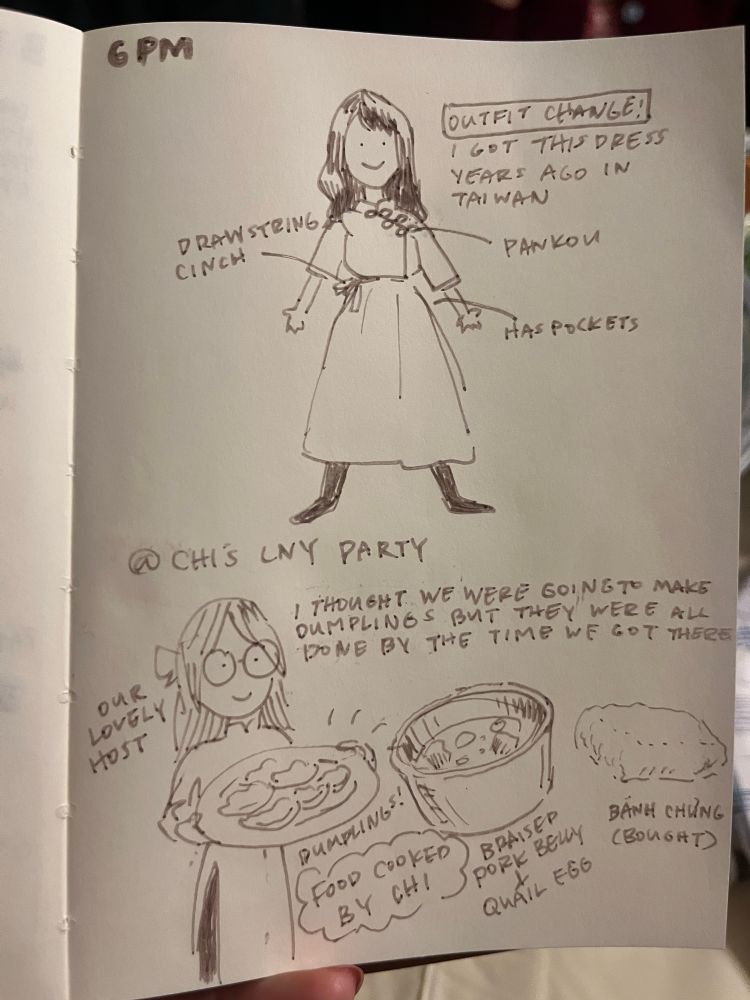 6 PM
OUTFIT CHANGE!
I GOT THIS DRESS
YEARS AGO IN
TAIWAN
DRAWSTRING
CINCH
PANKOU
HAS POCKETS
@ CHI'S LNY PARTY
I THOUGHT WE WERE GOING TO MAKE
DUMPLINGS BUT THEY WERE ALL
DONE BY THE TIME WE GOT THERE
OUR
LOVELY
HOST
DUMPLINGS!
FOOD COOKED
BY CHI
BRAISED
PORK BELLY
+
QUAIL EGG
BÁNH CHƯNG
(BOUGHT)